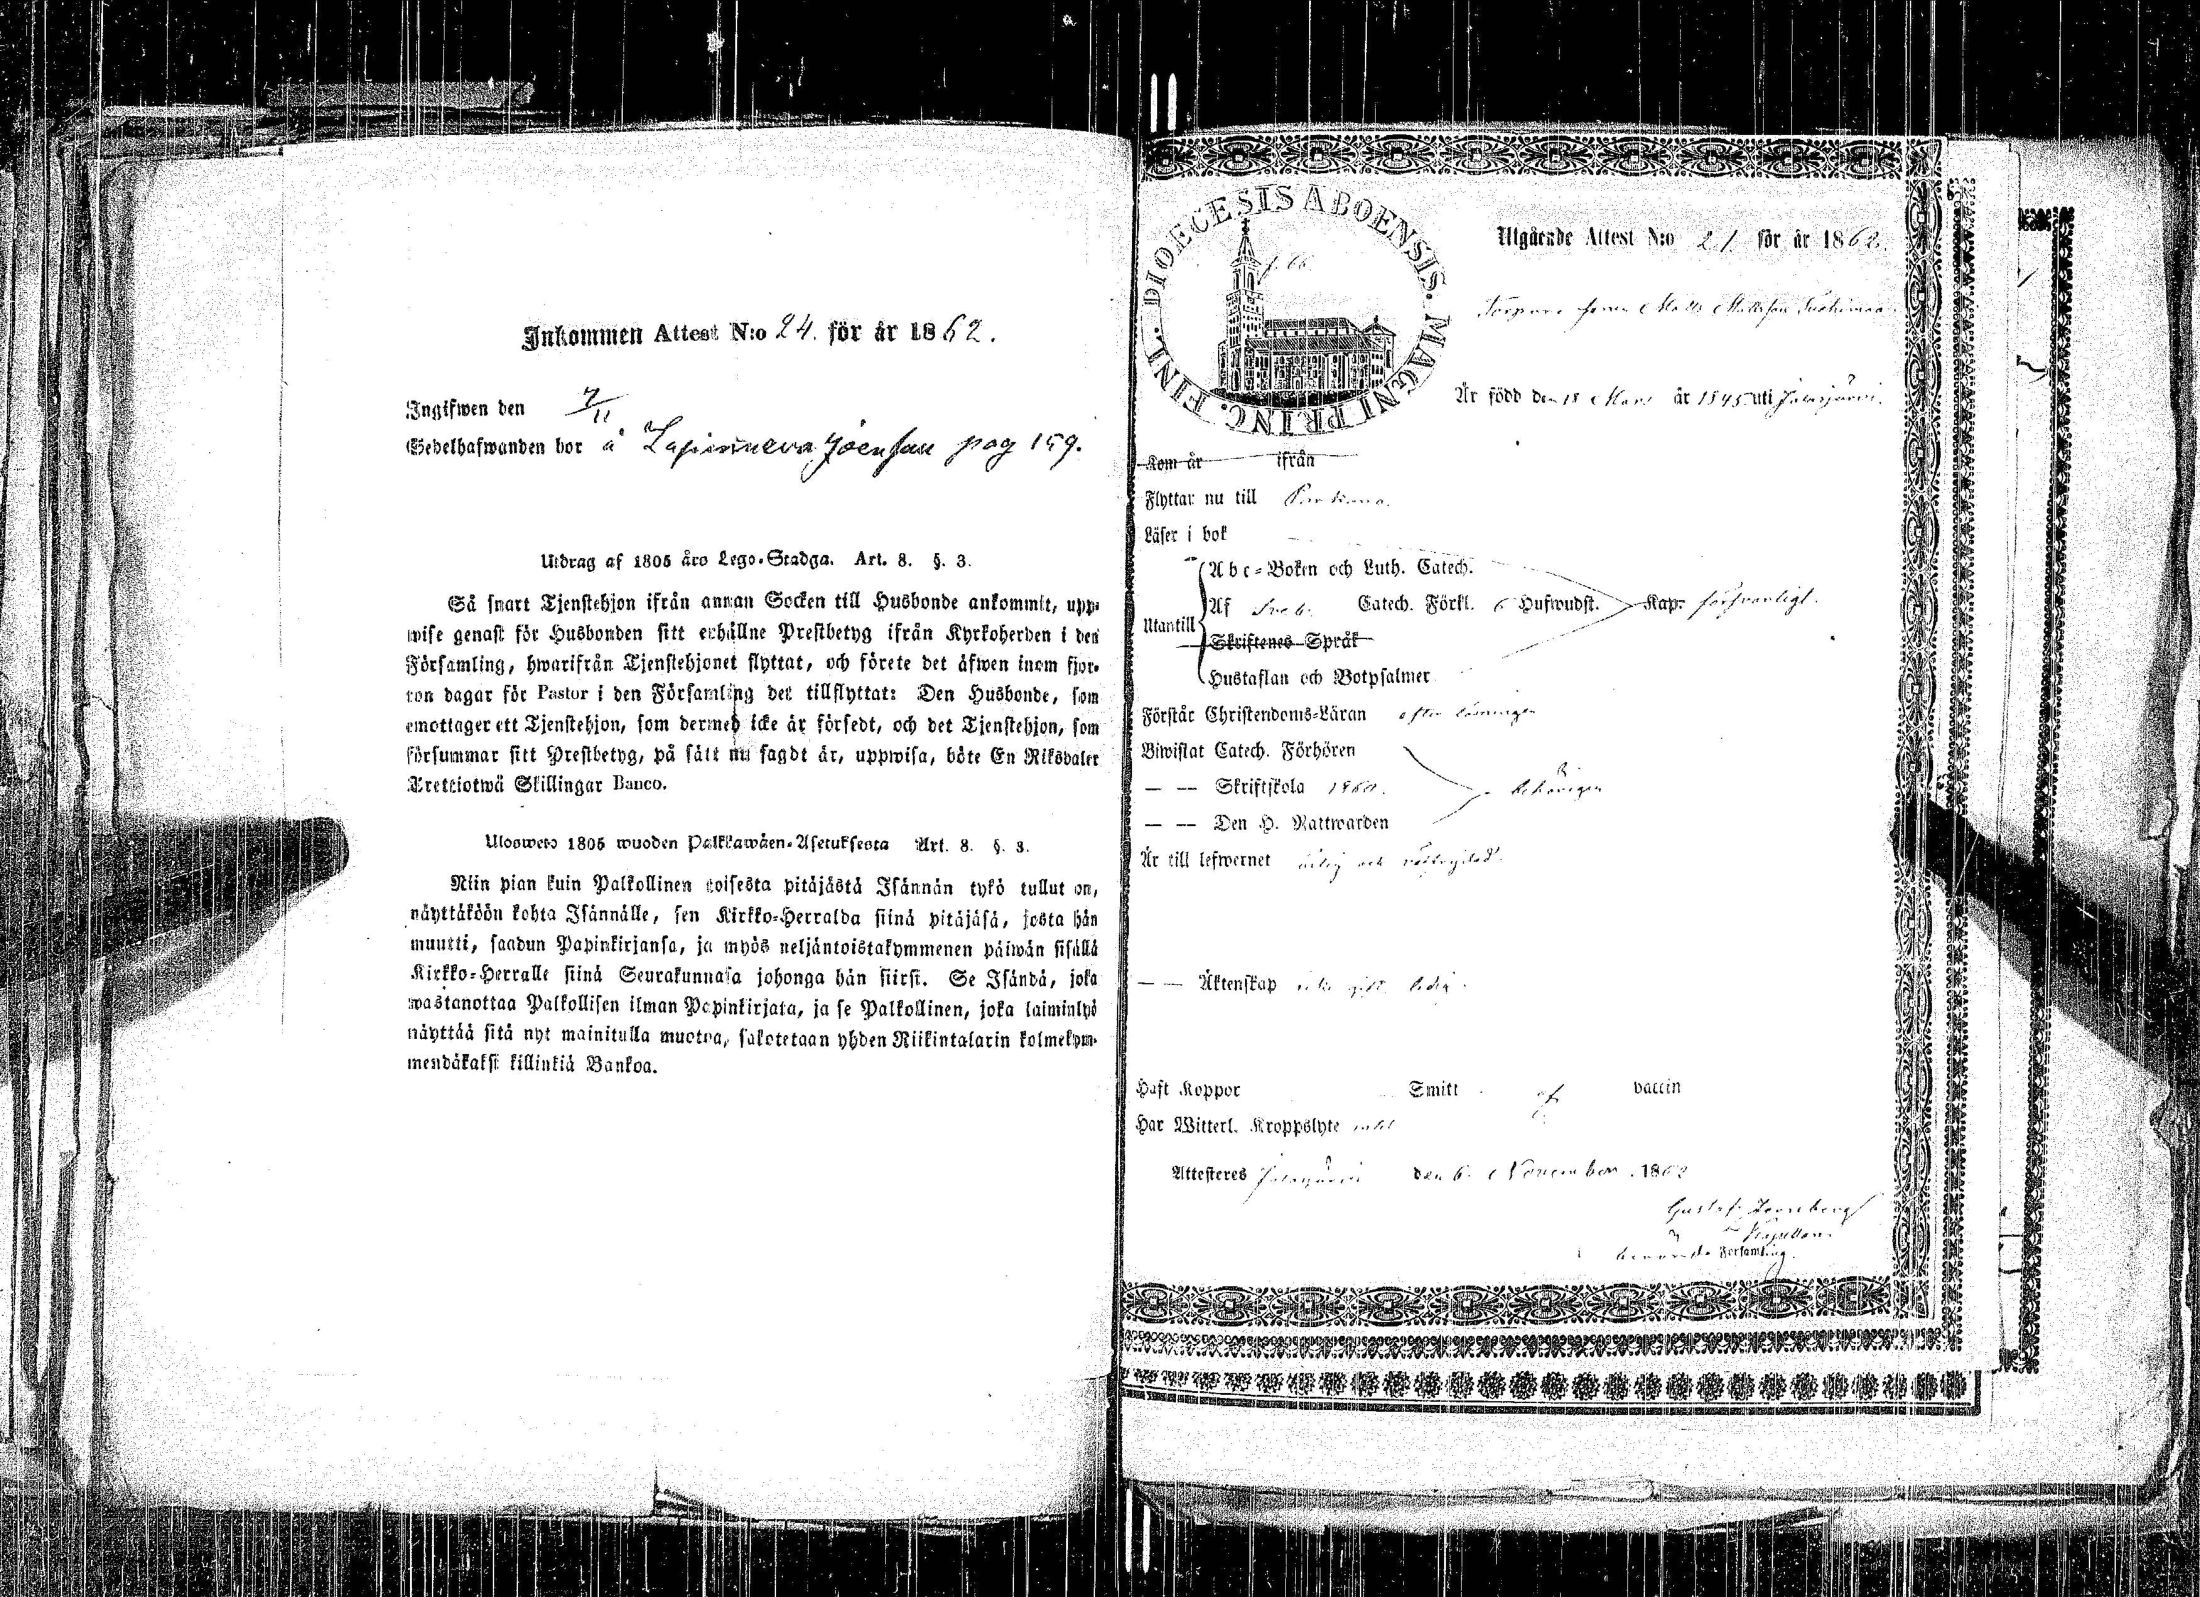 Inkommen Attest N:o 24. för år 1862.
Ingifwen den 7/11
Sedelhafwanden bor å Lapinneva Joensuu pag 159.
Utdrag af 1805 års Lego-Stadga. Art. 8. §. 3.
Så snart Tjenstehjon ifrån annan Socken till Husbonde ankommit, upp-
wise genast för Husbonden sitt erhållne Prestbetyg ifrån Kyrkoherden i den
Församling, hwarifrån Tjenstehjonet flyttat, och förete det äfwen inom fjor-
ton dagar för Pastor i den Församling det tillflyttat: Den Husbonde, som
emottager ett Tjenstehjon, som dermed icke är försedt, och det Tjenstehjon, som
försummar sitt Prestbetyg, på sätt nu sagdt är, uppwisa, böte En Riksdaler
Trettiotwå Skillingar Banco.
Ulosweto 1805 wuoden Palkkawäen-Asetuksesta Art. 8. §. 3.
Niin pian kuin Palkollinen toisesta pitäjästä Isännän tykö tullut on,
näyttäköön kohta Isännälle, sen Kirkko-Herralda siinä pitäjäsä, josta hän
muutti, saadun Papinkirjansa, ja myös neljäntoistakymmenen päiwän sisällä
Kirkko-Herralle siinä Seurakunnasa johonga hän siirst. Se Isändä, joka
wastanottaa Palkollisen ilman Papinkirjata, ja se Palkollinen, joka laiminlyö
näyttää sitä nyt mainitulla muotoa, sakotetaan yhden Riikintalarin kolmekym-
mendäkaksi killinkiä Bankoa.
DIOECESIS ABOENSIS. MAGNI PRINC. FINL.
Utgående Attest N:o 21 för år 1862.
Matts Mattsson
Är född den 18 Mars år 1845 uti Jalasjärvi.
Kom år ifrån
Flyttar nu till Parkano.
Läser i bok
Abc-Boken och Luth. Catech.
Utantill Af Sveb. Catech. Förkl. 6 Hufwudst. Kap. försvarligt.
Skriftenes Språk
Hustaflan och Botpsalmer
Förstår Christendoms-Läran efter
Biwistat Catech. Förhören
— — Skriftskola 1860. behörigen
— — Den H. Nattwarden
Är till lefwernet ärlig och
— — Äktenskap icke gift, ledig.
Haft Koppor Smitt af vaccin
Har Witterl. Kroppslyte intet
Attesteras Jalasjärvi den 6. November 1862
Gustaf
Kapellan.
i Församling.